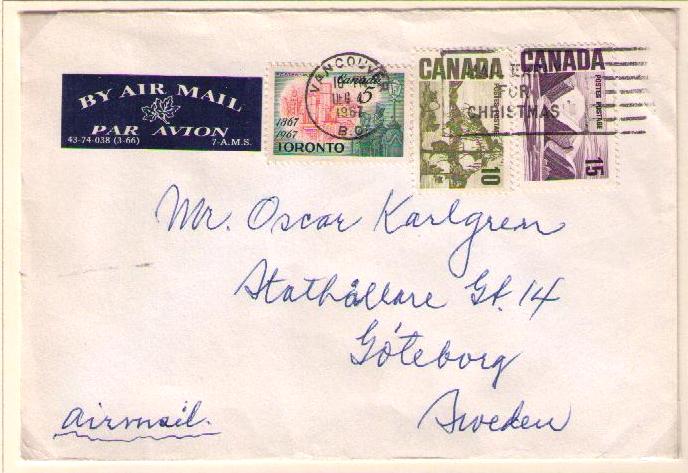 BY AIR MAIL
PAR AVION
43-74-038 (3-66) 7-A.M.S.
Canada 5
1867
1967
TORONTO
VANCOUVER
1967
B.C.
CANADA
POSTES POSTAGE
10
CANADA
POSTES POSTAGE
15
FOR
CHRISTMAS
Mr. Oscar Karlgren
Stathållare Gt. 14
Göteborg
Sweden
airmail.